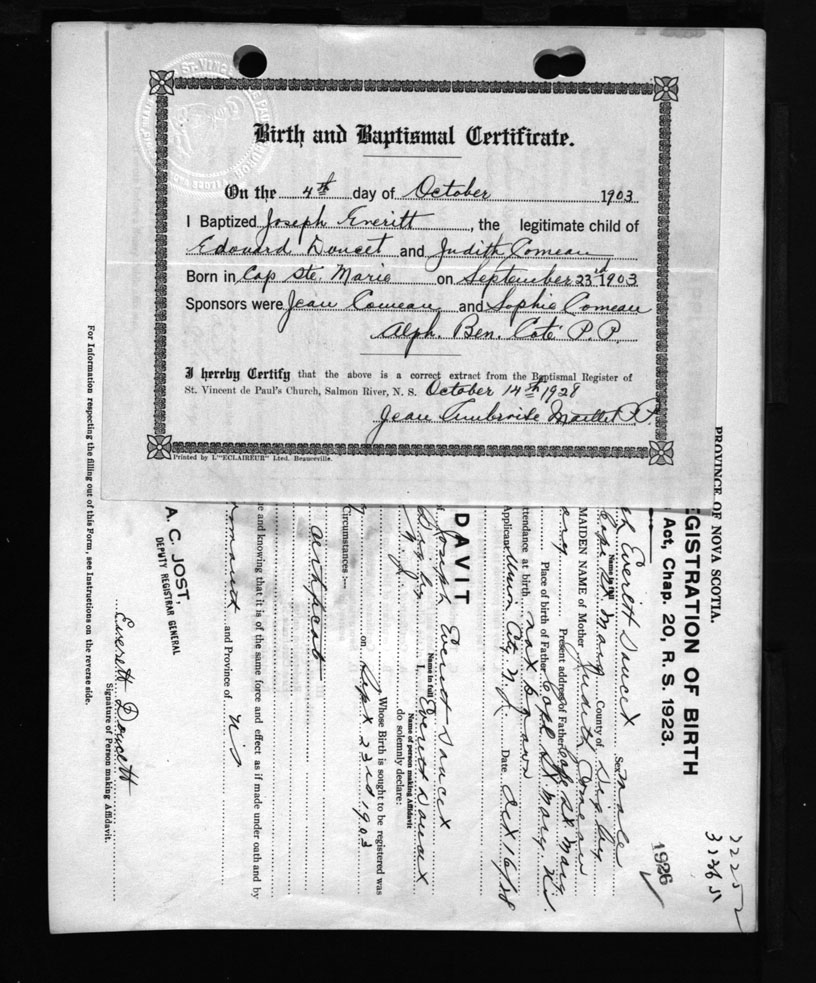 Birth and Baptismal Certificate.
On the 4th day of October 1903
I Baptized Joseph Everitt, the legitimate child of
Edouard Doucet and Judith Comeau
Born in Cap Ste. Marie on September 23rd 1903
Sponsors were Jean Comeau and Sophie Comeau
Alph. Ben. Coté P.P.
I hereby Certify that the above is a correct extract from the Baptismal Register of
St. Vincent de Paul's Church, Salmon River, N. S. October 14th 1928
Jean Ambroise Maillet P.P.
Printed by L'"ECLAIREUR" Lted. Beauceville.
PROVINCE OF NOVA SCOTIA.
EGISTRATION OF BIRTH
Act, Chap. 20, R. S. 1923.
1926
32252
Everett Doucet Sex male
Name in full
Cape St Mary County of Digby
MAIDEN NAME of Mother Judith Comeau
Present address of Father Cape St. Mary
Place of birth of Father Cape St Mary. N.S.
ttendance at birth not known
Applicant Union City, N.J. Date Oct 16/28
DAVIT
Joseph Everett Doucet
Name in full
I, Everett Doucet
Name of person making Affidavit
N. J. do solemnly declare:
Whose Birth is sought to be registered was
on Sept 23rd 1903
Circumstances:—
e and knowing that it is of the same force and effect as if made under oath and by
and Province of N S
A. C. JOST
DEPUTY REGISTRAR GENERAL
Everett Doucett
Signature of Person making Affidavit.
For Information respecting the filling out of this Form, see Instructions on the reverse side.